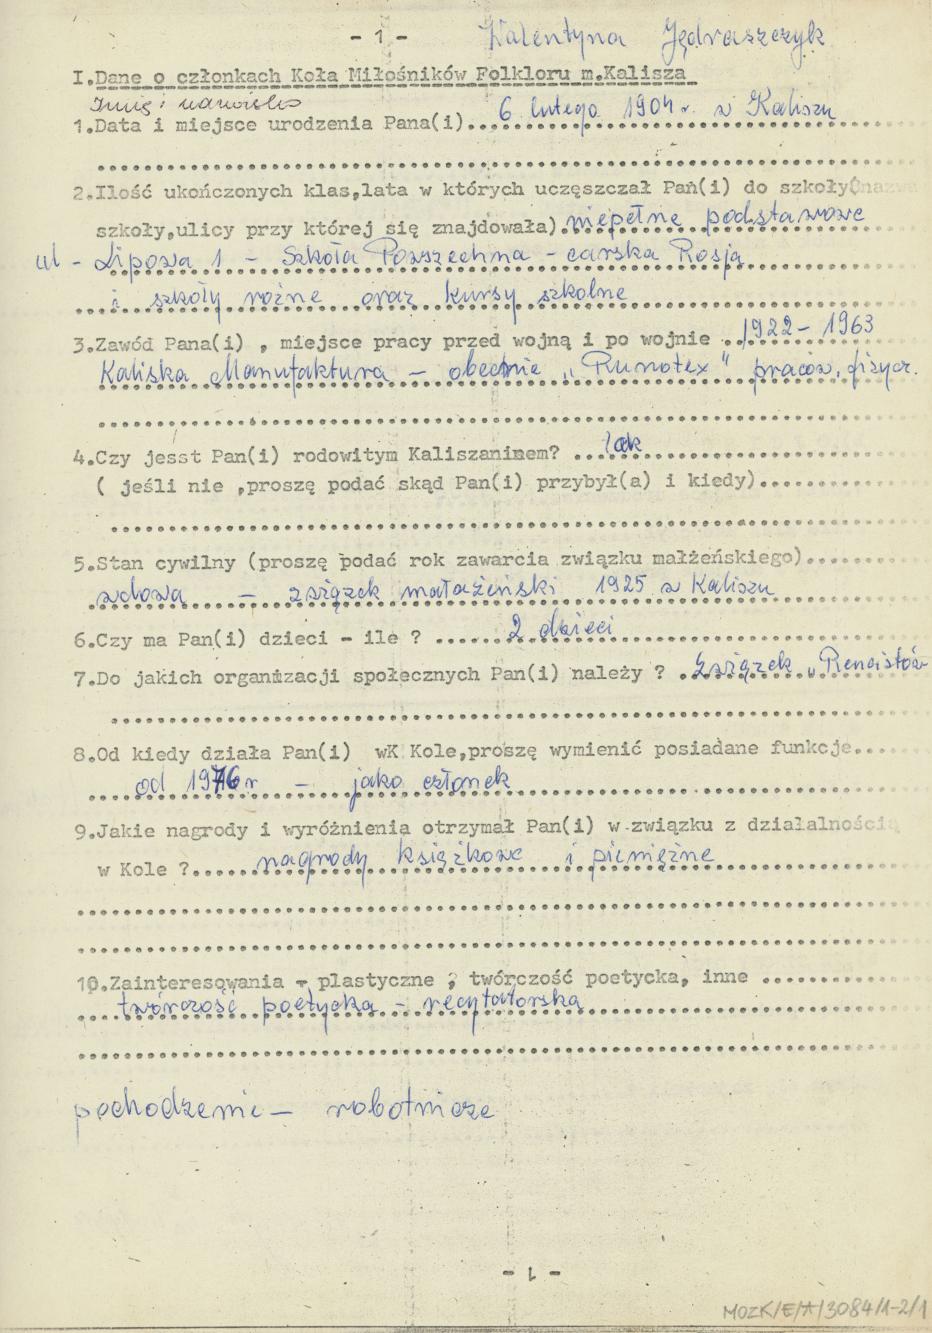 - 1 -
Walentyna Jędraszczyk
I.Dane o członkach Koła Miłośników Folkloru m.Kalisza
Imię i nazwisko
1.Data i miejsce urodzenia Pana(i)...6 lutego 1904 r. w Kaliszu
2.Ilość ukończonych klas,lata w których uczęszczał Pań(i) do szkoły(nazwa
szkoły,ulicy przy której się znajdowała).niepełne podstawowe
ul - Lipowa 1 - Szkoła Powszechna - carska Rosja
i szkoły rożne oraz kursy szkolne
3.Zawód Pana(i) , miejsce pracy przed wojną i po wojnie ..1922- 1963
Kaliska Manufaktura - obecnie "Runotex" pracow. fizycz.
4.Czy jesst Pan(i) rodowitym Kaliszaninem? ...tak
( jeśli nie ,proszę podać skąd Pan(i) przybył(a) i kiedy)
5.Stan cywilny (proszę podać rok zawarcia związku małżeńskiego)
wdowa - związek małażeński 1925 w Kaliszu
6.Czy ma Pan(i) dzieci - ile ? ......2 dzieci
7.Do jakich organizacji społecznych Pan(i) należy ? .Związek "Rencistów
8.Od kiedy działa Pan(i) wK Kole,proszę wymienić posiadane funkcje...
od 1976 r - jako członek
9.Jakie nagrody i wyróżnienia otrzymał Pan(i) w związku z działalnością
w Kole ?......nagrody książkowe i pieniężne
10.Zainteresowania - plastyczne , twórczość poetycka, inne
twórczość poetycka - recytatorska
pochodzenie - robotnicze
- 1 -
MOZK/E/A/3084/1-2/1